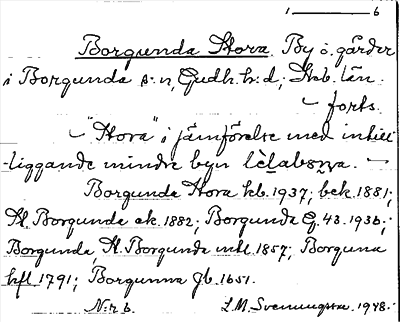 1 — 6
Borgunda Stora. By o. gårdar
i Borgunda s:n, Gudh. h:d, Skb. län.
— forts.
— "Stora" i jämförelse med intill
liggande mindre byn
Borgunda Stora kb. 1937; bek. 1881;
St. Borgunda ek. 1882; Borgunda G. 43. 1936;
Borgunda, St. Borgunda 1857; Borguna
hfl 1791; Borgunna jb. 1651.
N:r 6. L.M. Svenungsson. 1948.